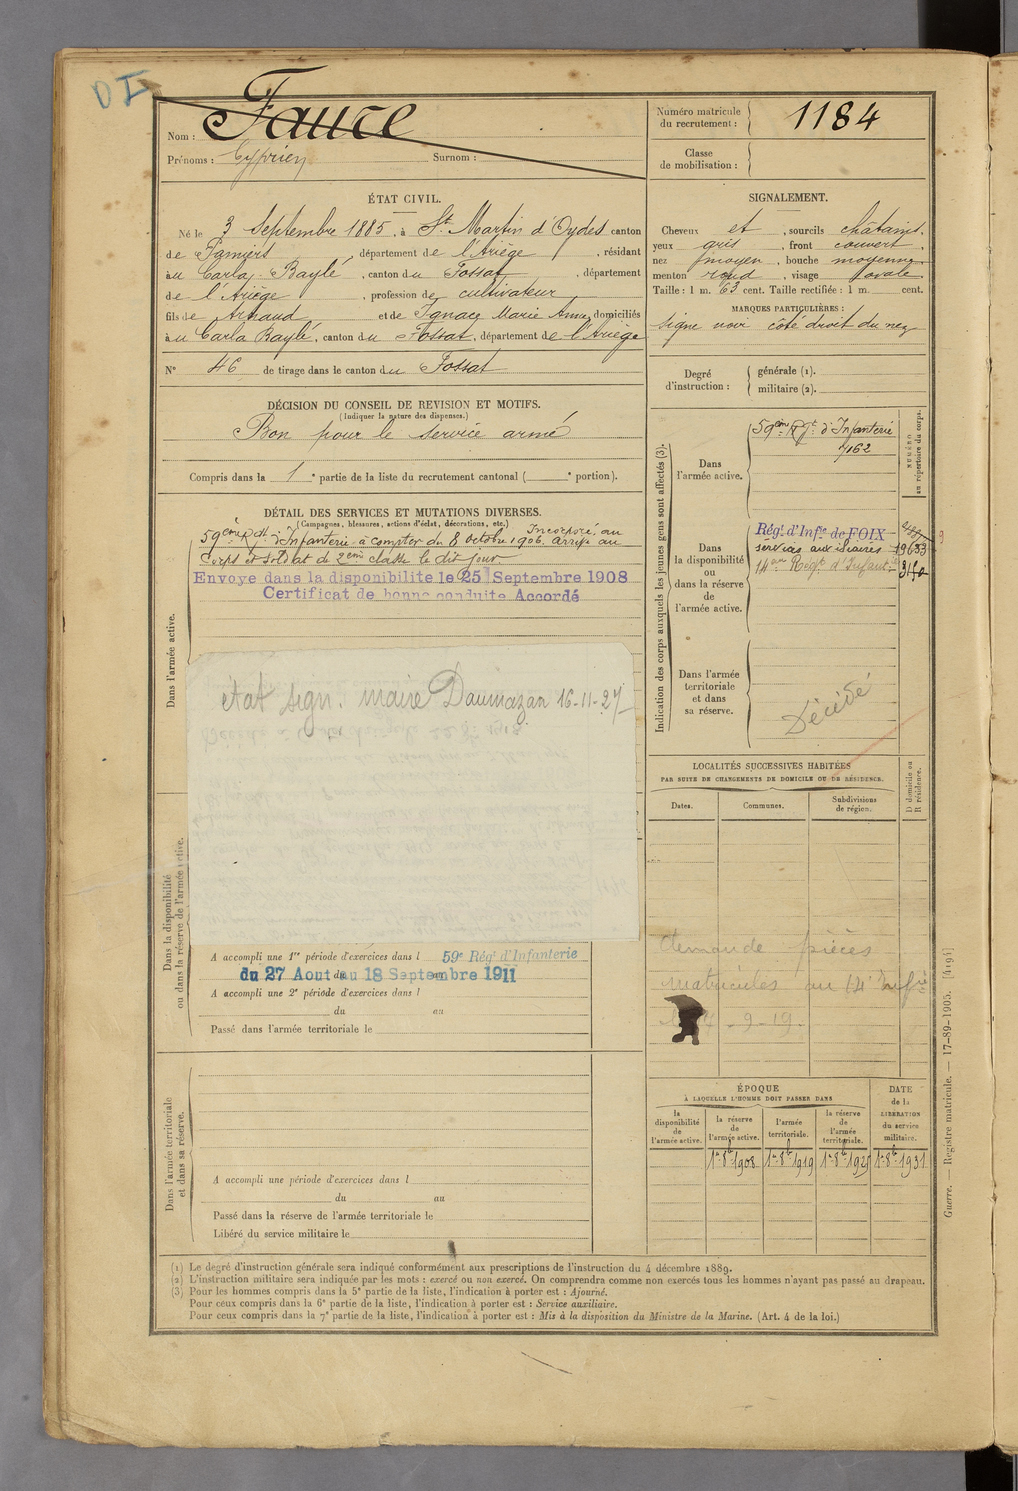 D I
Nom : Faure
Prénoms : Cyprien Surnom :
Numéro matricule
du recrutement : 1184
Classe
de mobilisation :
ÉTAT CIVIL.
Né le 3 Septembre 1885, à St Martin d'Oydes canton
de Pamiers, département de l'Ariège, résidant
au Carla-Bayle, canton du Fossat, département
de l'Ariège, profession de cultivateur
fils de Arnaud et de Ignace Marie Anne, domiciliés
au Carla Bayle, canton du Fossat, département de l'Ariège
N° 46 de tirage dans le canton du Fossat
DÉCISION DU CONSEIL DE REVISION ET MOTIFS.
(Indiquer la nature des dispenses.)
Bon pour le service armé
Compris dans la 1e partie de la liste du recrutement cantonal ( e portion).
SIGNALEMENT.
Cheveux et, sourcils châtains.
yeux gris, front couvert,
nez moyen, bouche moyenne,
menton rond, visage ovale.
Taille : 1 m. 63 cent. Taille rectifiée : 1 m. cent.
MARQUES PARTICULIÈRES :
signe noir côté droit du nez
Degré
d'instruction :
générale (1).
militaire (2).
DÉTAIL DES SERVICES ET MUTATIONS DIVERSES.
(Campagnes, blessures, actions d'éclat, décorations, etc.)
Incorporé au
59ème Rgt d'Infanterie à compter du 8 octobre 1906, arrivé au
Corps et soldat de 2eme classe le dit jour
Envoye dans la disponibilite le 25 Septembre 1908
Certificat de bonne conduite Accordé
Dans l'armée active.
etat sign. maire Daumazan 16-11-27
Dans la disponibilité
ou dans la réserve de l'armée active.
A accompli une 1re période d'exercices dans l 59e Régt d'Infanterie
du 27 Aout au 18 Septembre 1911
A accompli une 2e période d'exercices dans l
du au
Passé dans l'armée territoriale le
Dans l'armée territoriale
et dans sa réserve.
A accompli une période d'exercices dans l
du au
Passé dans la réserve de l'armée territoriale le
Libéré du service militaire le
Indication des corps auxquels les jeunes gens sont affectés (3).
NUMÉRO
au répertoire du corps.
Dans
l'armée active.
59eme Rgt d'Infanterie
7162
Dans
la disponibilité
ou
dans la réserve
de
l'armée active.
Régt d'Infie de FOIX
services auxiliaires 19633
14eme Regt d'Infanie 3150
Dans l'armée
territoriale
et dans
sa réserve.
Décédé
LOCALITÉS SUCCESSIVES HABITÉES
PAR SUITE DE CHANGEMENTS DE DOMICILE OU DE RÉSIDENCE.
Dates. Communes. Subdivisions
de région.
D domicile ou
R résidence.
demande pièces
matricules au 14e Infie
4-9-19.
ÉPOQUE
À LAQUELLE L'HOMME DOIT PASSER DANS
DATE
de la
LIBÉRATION
du service
militaire.
la
disponibilité
de
l'armée active.
la réserve
de
l'armée active.
l'armée
territoriale.
la réserve
de
l'armée
territoriale.
1er 8b 1908 1er 8b 1919 1er 8b 1925 1er 8b 1931
(1) Le degré d'instruction générale sera indiqué conformément aux prescriptions de l'instruction du 4 décembre 1889.
(2) L'instruction militaire sera indiquée par les mots : exercé ou non exercé. On comprendra comme non exercés tous les hommes n'ayant pas passé au drapeau.
(3) Pour les hommes compris dans la 5e partie de la liste, l'indication à porter est : Ajourné.
Pour ceux compris dans la 6e partie de la liste, l'indication à porter est : Service auxiliaire.
Pour ceux compris dans la 7e partie de la liste, l'indication à porter est : Mis à la disposition du Ministre de la Marine. (Art. 4 de la loi.)
Guerre. — Registre matricule. — 17-89-1905. [4194]